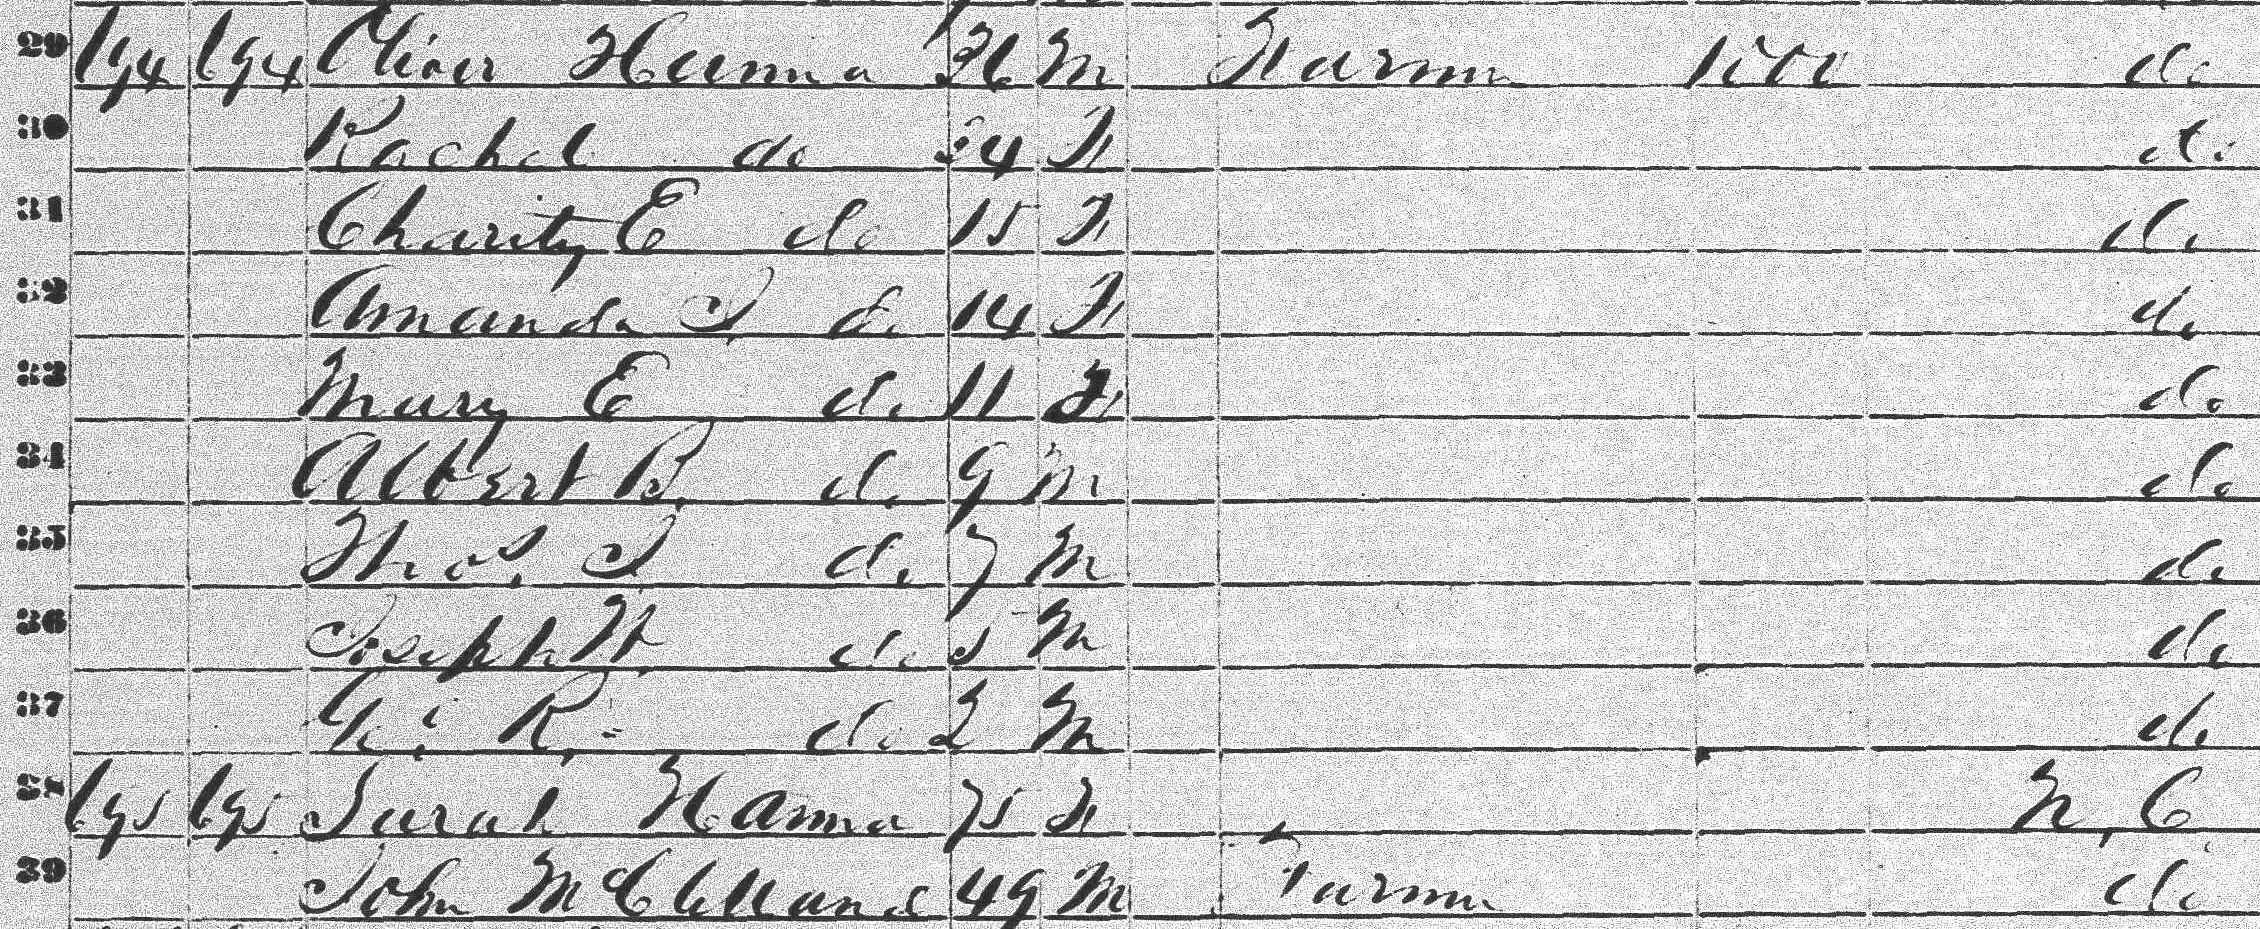 29 694 694 Oliver Hanna 36 M Farmer 1000 do
30 Rachel do 34 F do
31 Charity E do 15 F do
32 Amanda J do 14 F do
33 Mary E do 11 F do
34 Albert B. do 9 M do
35 Thos. J do 7 M do
36 Joseph W do 5 M do
37 R. do 2 M do
38 695 695 Sarah Hanna 75 F N, C
39 John McClelland 49 M Farmer do